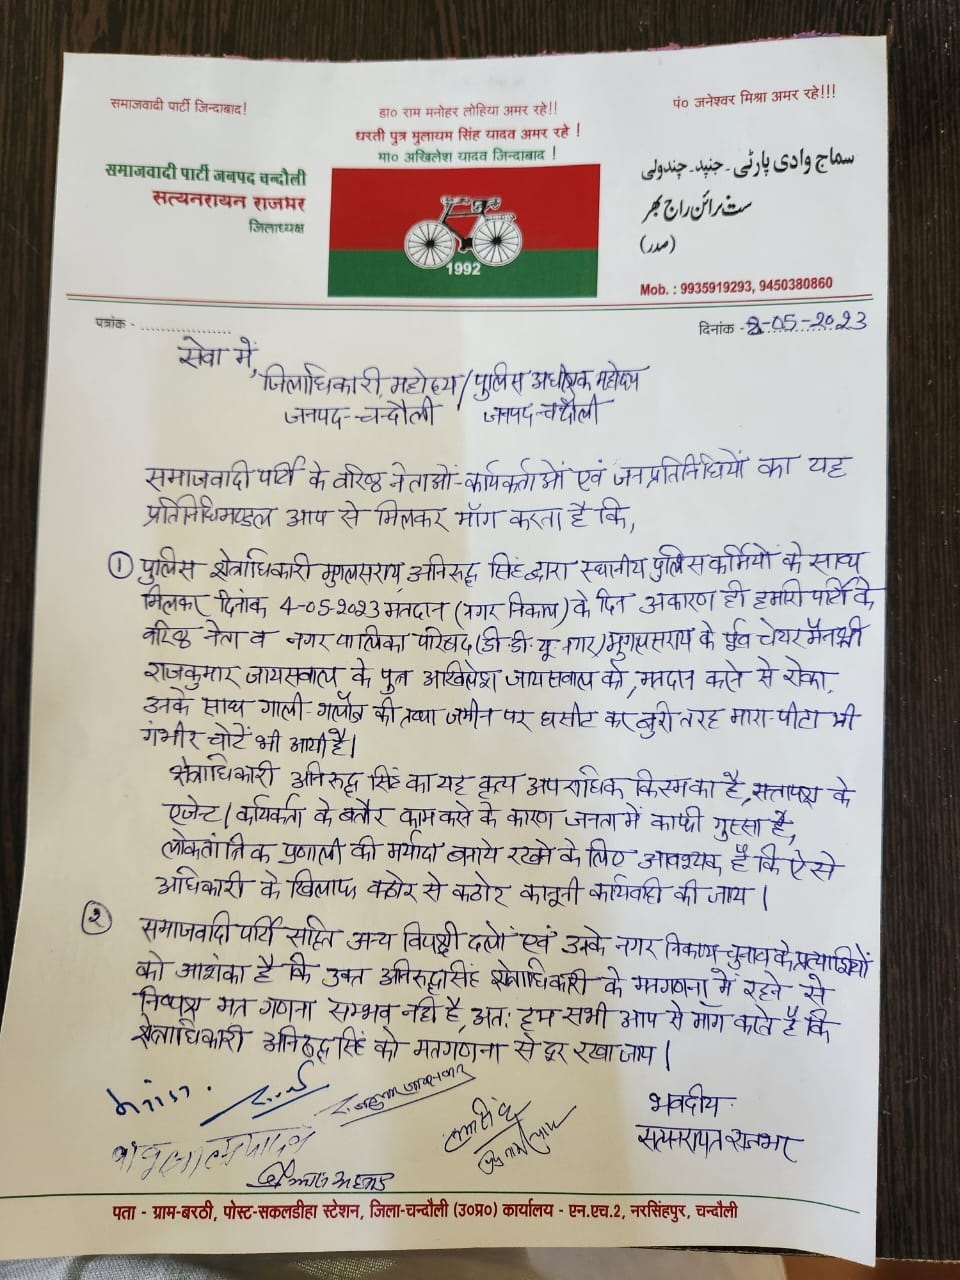 समाजवादी पार्टी जिन्दाबाद!
डा० राम मनोहर लोहिया अमर रहे!!
पं० जनेश्वर मिश्रा अमर रहे!!!
धरती पुत्र मुलायम सिंह यादव अमर रहे !
मा० अखिलेश यादव जिन्दाबाद !
समाजवादी पार्टी जनपद चन्दौली
सत्यनरायन राजभर
जिलाध्यक्ष
1992
سماج وادی پارٹی - جنپد - چندولی
ست نرائن راج بھر
(صدر)
Mob. : 9935919293, 9450380860
पत्रांक - ..................
दिनांक - 8-05-2023
सेवा में,
जिलाधिकारी, महोदय / पुलिस अधीक्षक महोदय
जनपद-चन्दौली जनपद-चन्दौली
समाजवादी पार्टी के वरिष्ठ नेताओं-कार्यकर्ताओं एवं जनप्रतिनिधियों का यह
प्रतिनिधिमण्डल आप से मिलकर माँग करता है कि,
① पुलिस क्षेत्राधिकारी मुगलसराय अनिरुद्ध सिंह द्वारा स्थानीय पुलिस कर्मियों के साथ
मिलकर दिनांक 4-05-2023 मतदान (नगर निकाय) के दिन अकारण ही हमारी पार्टी के
वरिष्ठ नेता व नगर पालिका परिषद (डी.डी.यू. नगर) मुगलसराय के पूर्व चेयरमैन श्री
राजकुमार जायसवाल के पुत्र अखिलेश जायसवाल को, मतदान करने से रोका,
उनके साथ गाली-गलौज की तथा जमीन पर घसीट कर बुरी तरह मारा-पीटा भी
गंभीर चोटें भी आयी है।
क्षेत्राधिकारी अनिरुद्ध सिंह का यह कृत्य अपराधिक किस्म का है, सत्तापक्ष के
एजेन्ट / कार्यकर्ता के बतौर काम करने के कारण जनता में काफी गुस्सा है,
लोकतांत्रिक प्रणाली की मर्यादा बनाये रखने के लिए आवश्यक है कि ऐसे
अधिकारी के खिलाफ कठोर से कठोर कानूनी कार्यवाही की जाय।
② समाजवादी पार्टी सहित अन्य विपक्षी दलों एवं उनके नगर निकाय चुनाव के प्रत्याशियों
को आशंका है कि उक्त अनिरुद्ध सिंह क्षेत्राधिकारी के मतगणना में रहने से
निष्पक्ष मत गणना सम्भव नहीं है, अतः हम सभी आप से माँग करते है कि
क्षेत्राधिकारी अनिरुद्ध सिंह को मतगणना से दूर रखा जाय।
भवदीय
सत्यनरायन राजभर
पता - ग्राम-बरठी, पोस्ट-सकलडीहा स्टेशन, जिला-चन्दौली (उ०प्र०) कार्यालय - एन.एच.2, नरसिंहपुर, चन्दौली